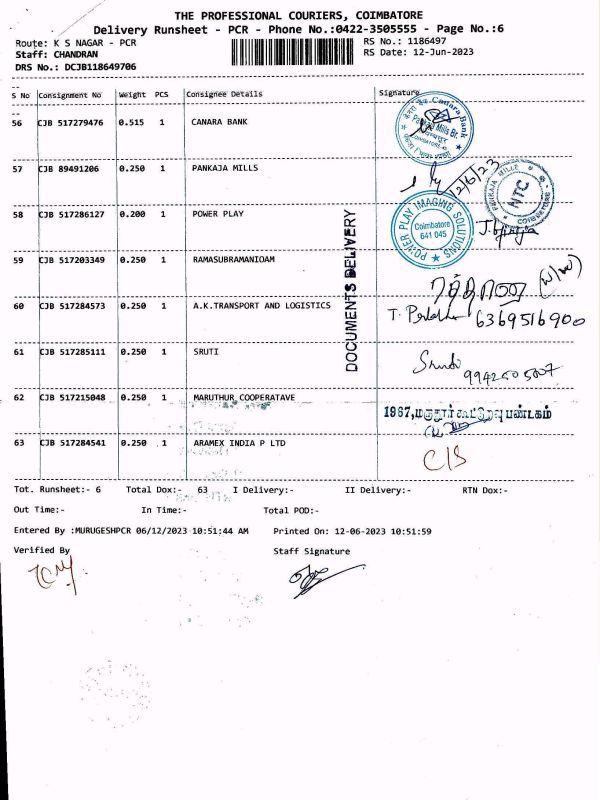 THE PROFESSIONAL COURIERS, COIMBATORE
Delivery Runsheet - PCR - Phone No.:0422-3505555 - Page No.:6
Route: K S NAGAR - PCR RS No.: 1186497
Staff: CHANDRAN RS Date: 12-Jun-2023
DRS No.: DCJB118649706
S No Consignment No Weight PCS Consignee Details Signature
56 CJB 517279476 0.515 1 CANARA BANK
Canara Bank
57 CJB 89491206 0.250 1 PANKAJA MILLS
12/6/23
NTC
COIMBATORE
58 CJB 517286127 0.200 1 POWER PLAY
POWER PLAY IMAGING SOLUTIONS
Coimbatore
641 045
DOCUMENTS DELIVERY
59 CJB 517203349 0.250 1 RAMASUBRAMANIOAM
60 CJB 517284573 0.250 1 A.K.TRANSPORT AND LOGISTICS
6369516900
61 CJB 517285111 0.250 1 SRUTI
62 CJB 517215048 0.250 1 MARUTHUR COOPERATAVE
63 CJB 517284541 0.250 1 ARAMEX INDIA P LTD
C/S
Tot. Runsheet:- 6 Total Dox:- 63 I Delivery:- II Delivery:- RTN Dox:-
Out Time:- In Time:- Total POD:-
Entered By :MURUGESHPCR 06/12/2023 10:51:44 AM Printed On: 12-06-2023 10:51:59
Verified By Staff Signature